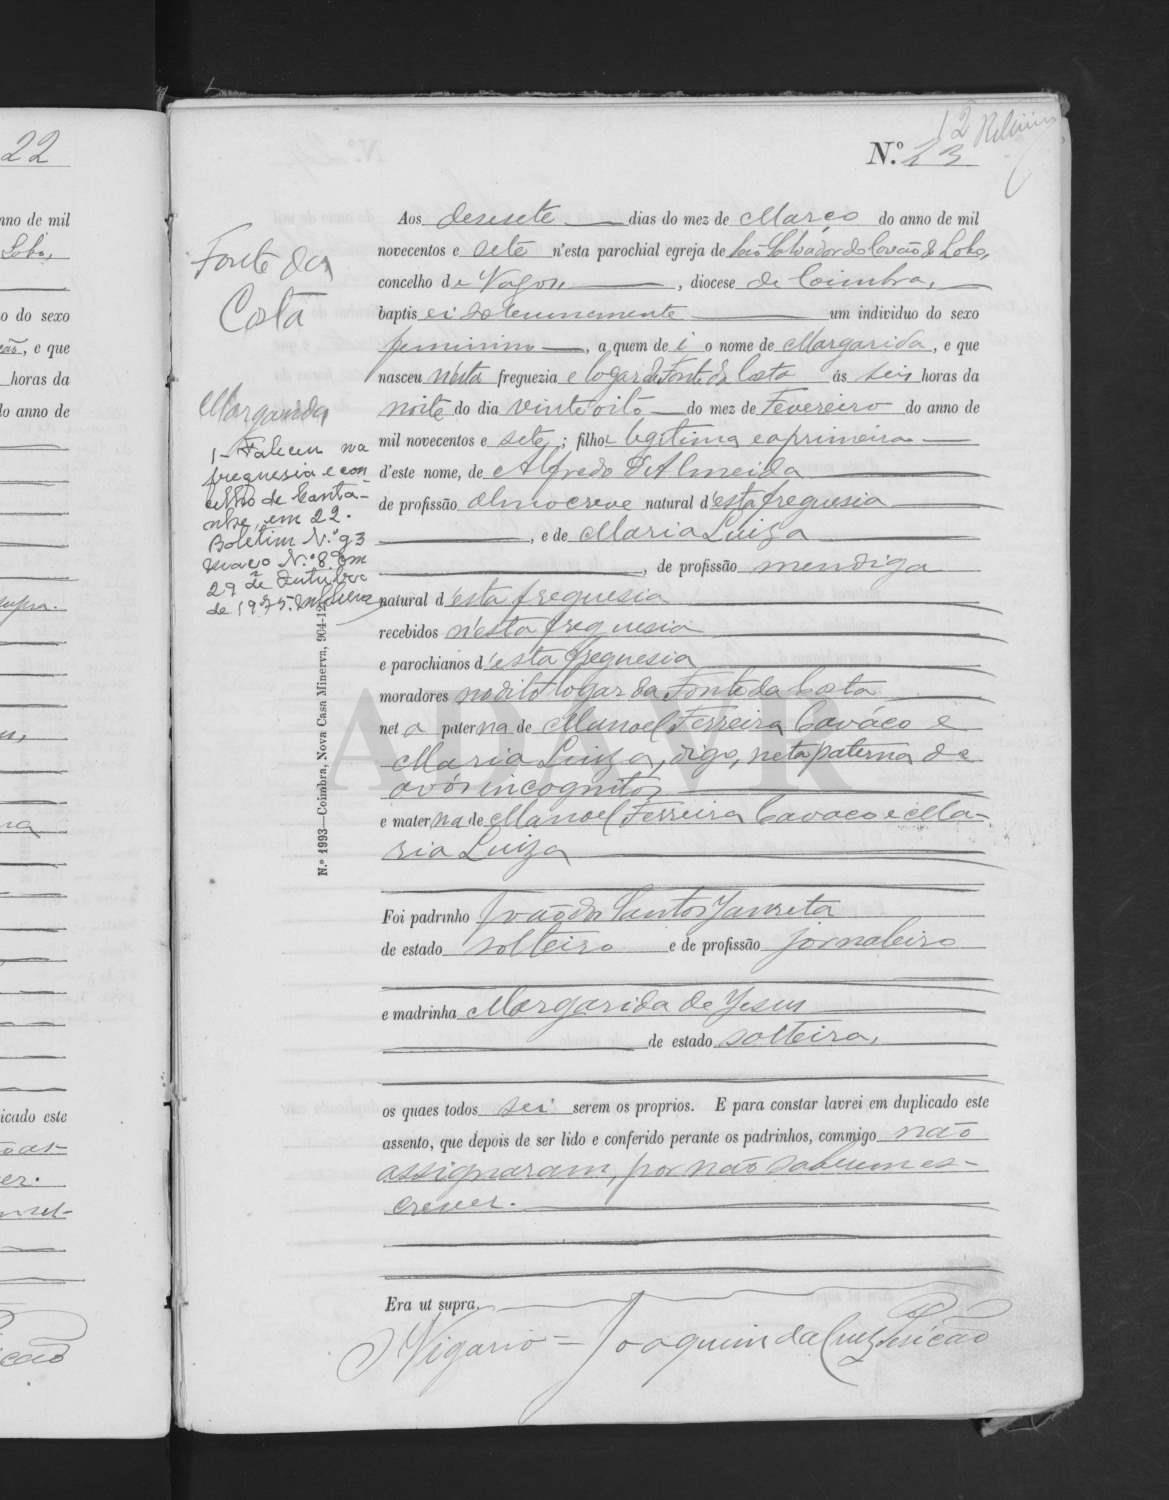 22
nno de mil
Lobo,
o do sexo
ção, e que
horas da
do anno de
supra.
icado este
er.
12
N.º 23
Fonte da
Costa
Margarida
1 - Faleceu na
freguesia e con
celho de Canta-
nhe, em 22.
Boletim N.º 93
maço N.º 8. Em
29 de Outubro
de 1975.
N.º 1993—Coimbra, Nova Casa Minerva, 904-12
Aos desesete dias do mez de Março do anno de mil
novecentos e sete n'esta parochial egreja de São Salvador do Covão do Lobo,
concelho de Vagos, diocese de Coimbra,
baptisei solemnemente um individuo do sexo
feminino, a quem dei o nome de Margarida, e que
nasceu nesta freguezia e logar da Fonte da Costa ás seis horas da
noite do dia vinte oito do mez de Fevereiro do anno de
mil novecentos e sete; filha legitima e a primeira
d'este nome, de Alfredo d'Almeida
de profissão almocreve natural d'esta freguesia
, e de Maria Luiza
, de profissão mendiga
natural d'esta freguesia
recebidos n'esta freguesia
e parochianos d'esta freguesia
moradores no dito logar da Fonte da Costa
neta paterna de Manoel Ferreira Caváco e
Maria Luiza, digo, neta paterna de
avós incognitos
e materna de Manoel Ferreira Cavaco e Ma-
ria Luiza
Foi padrinho João dos Santos Janreta
de estado solteiro e de profissão jornaleiro
e madrinha Margarida de Jesus
de estado solteira,
os quaes todos sei serem os proprios. E para constar lavrei em duplicado este
assento, que depois de ser lido e conferido perante os padrinhos, commigo não
assignaram, por não saberem es-
crever.
Era ut supra.
O Vigario = Joaquim da Cruz
ADAVR